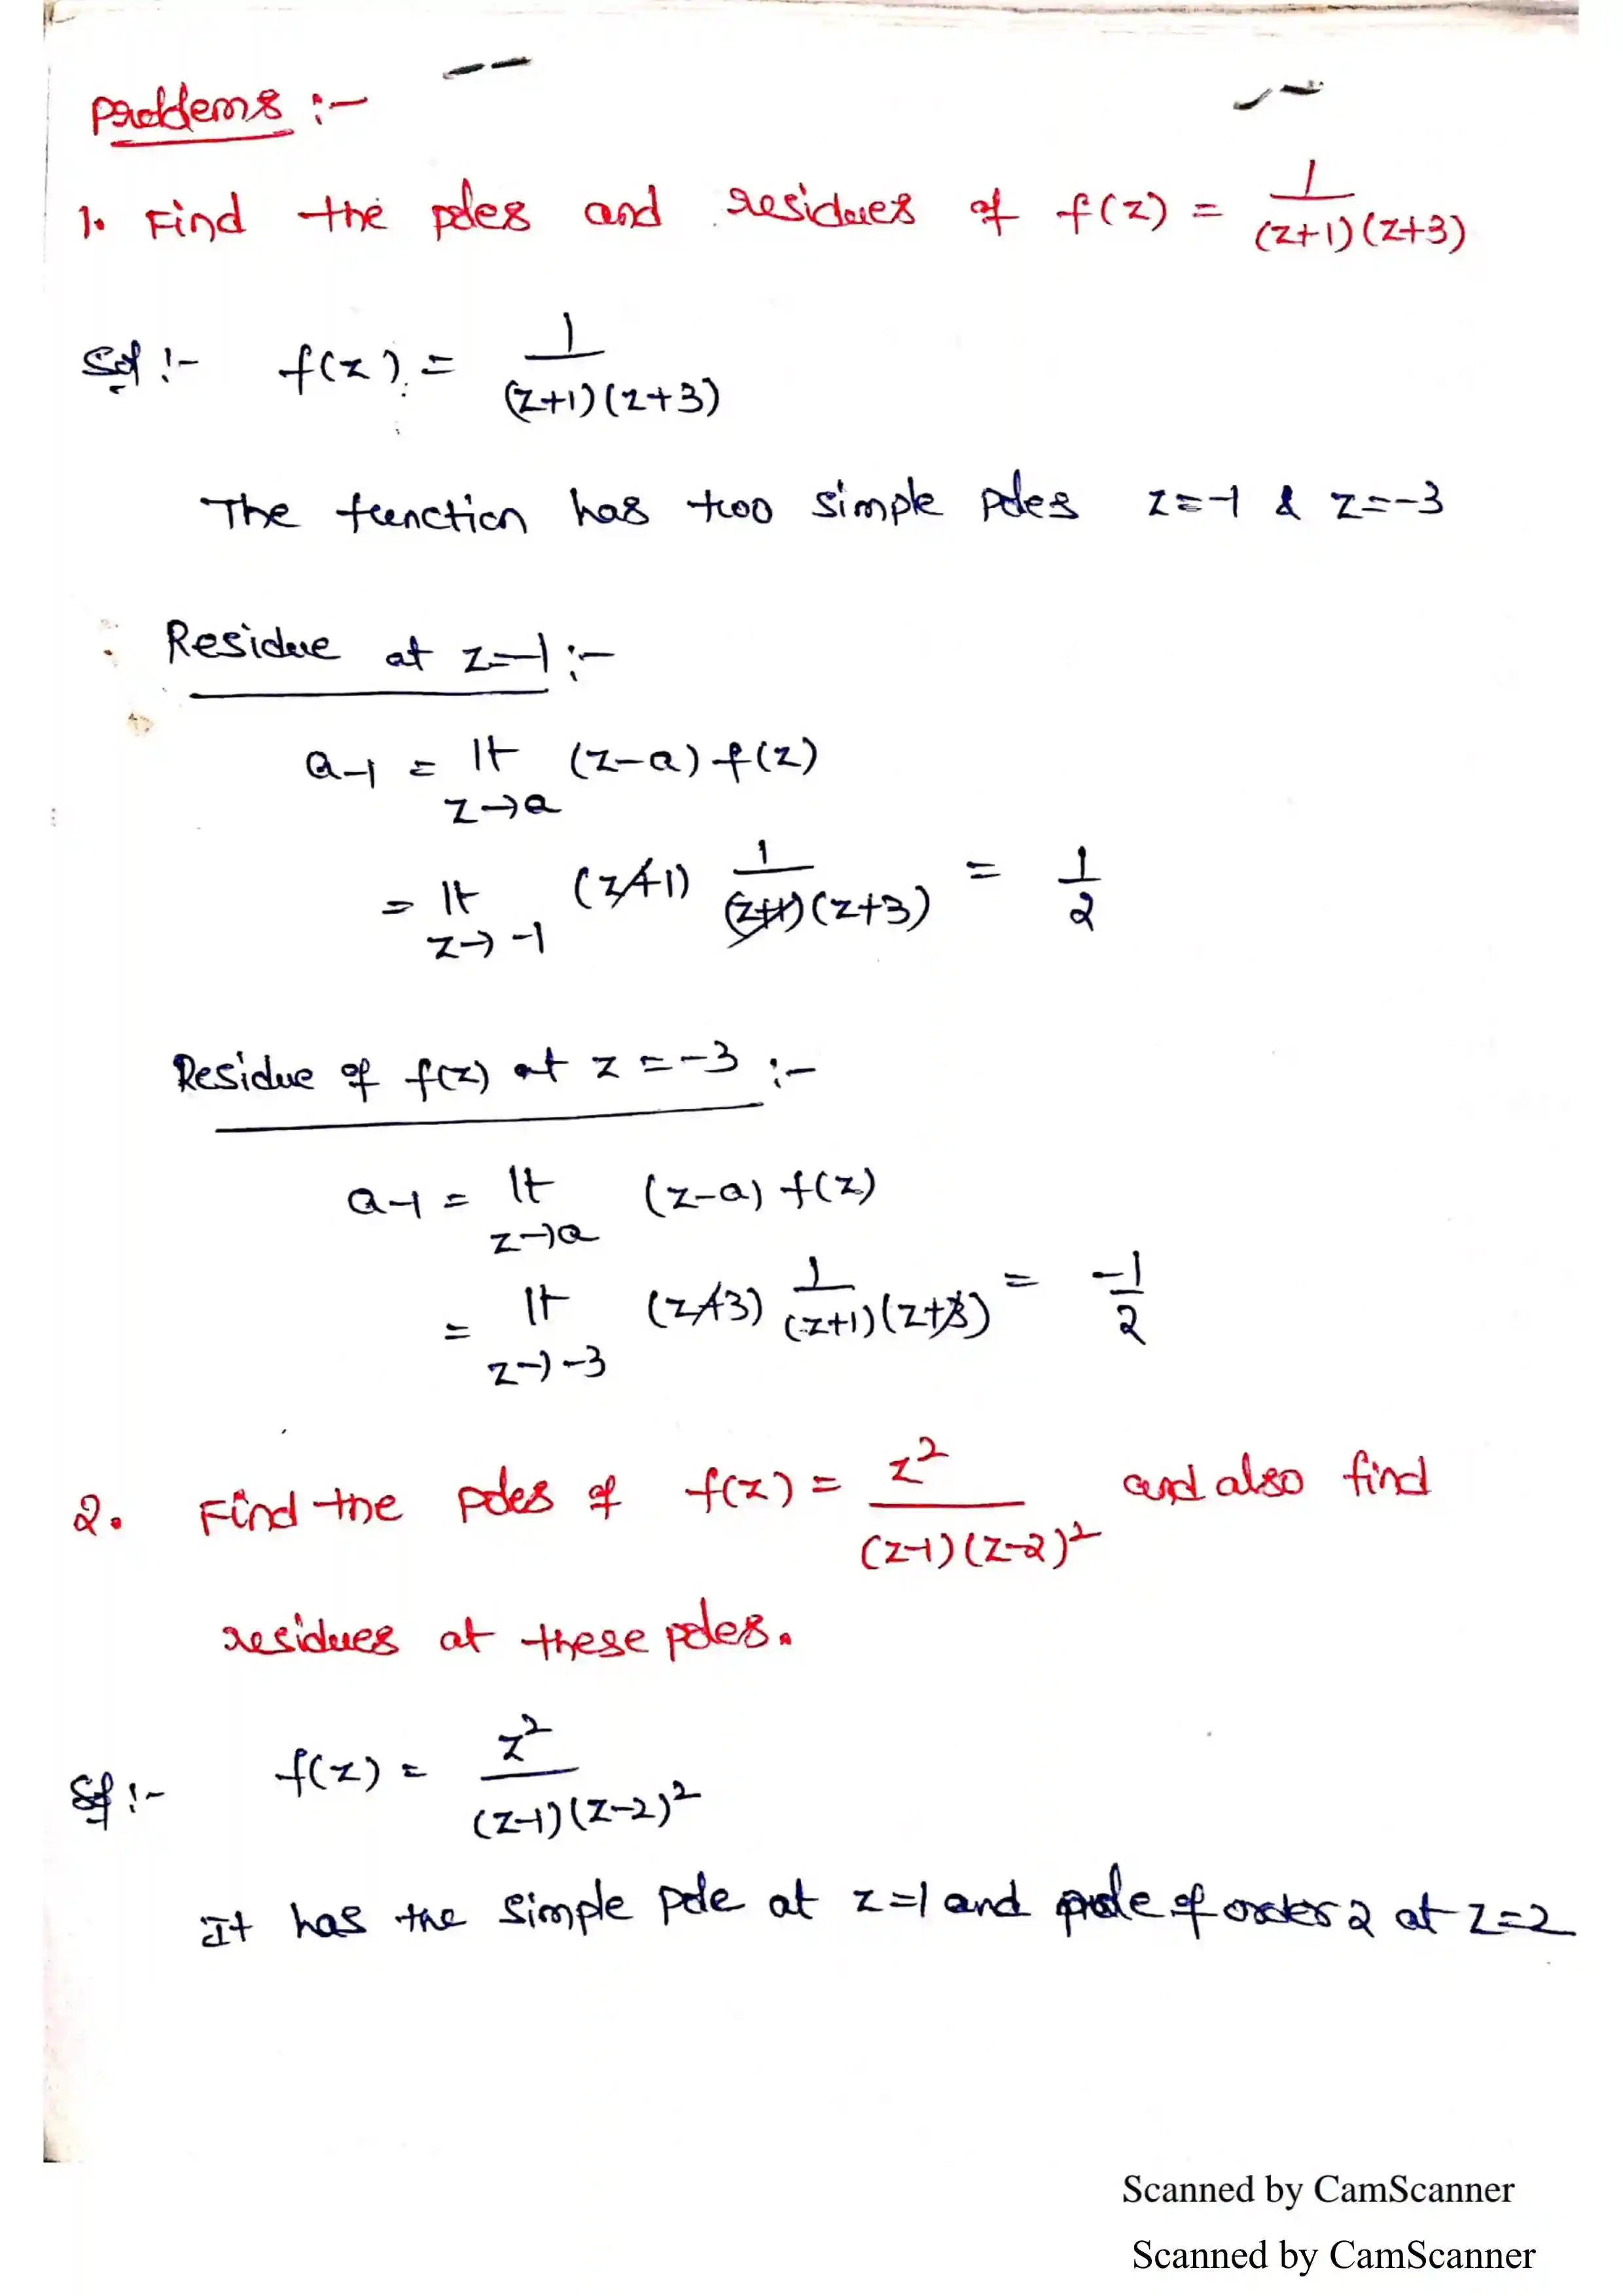 Problems :-
1. Find the poles and residues of f(z) = 1/((z+1)(z+3))
Sol :- f(z) = 1/((z+1)(z+3))
The function has two simple poles z=-1 & z=-3
Residue at z=-1 :-
a-1 = lt z→a (z-a) f(z)
= lt z→-1 (z+1) 1/((z+1)(z+3)) = 1/2
Residue of f(z) at z=-3 :-
a-1 = lt z→a (z-a) f(z)
= lt z→-3 (z+3) 1/((z+1)(z+3)) = -1/2
2. Find the poles of f(z) = z²/((z-1)(z-2)²) and also find
residues at these poles.
Sol :- f(z) = z²/((z-1)(z-2)²)
It has the simple pole at z=1 and pole of order 2 at z=2
Scanned by CamScanner
Scanned by CamScanner